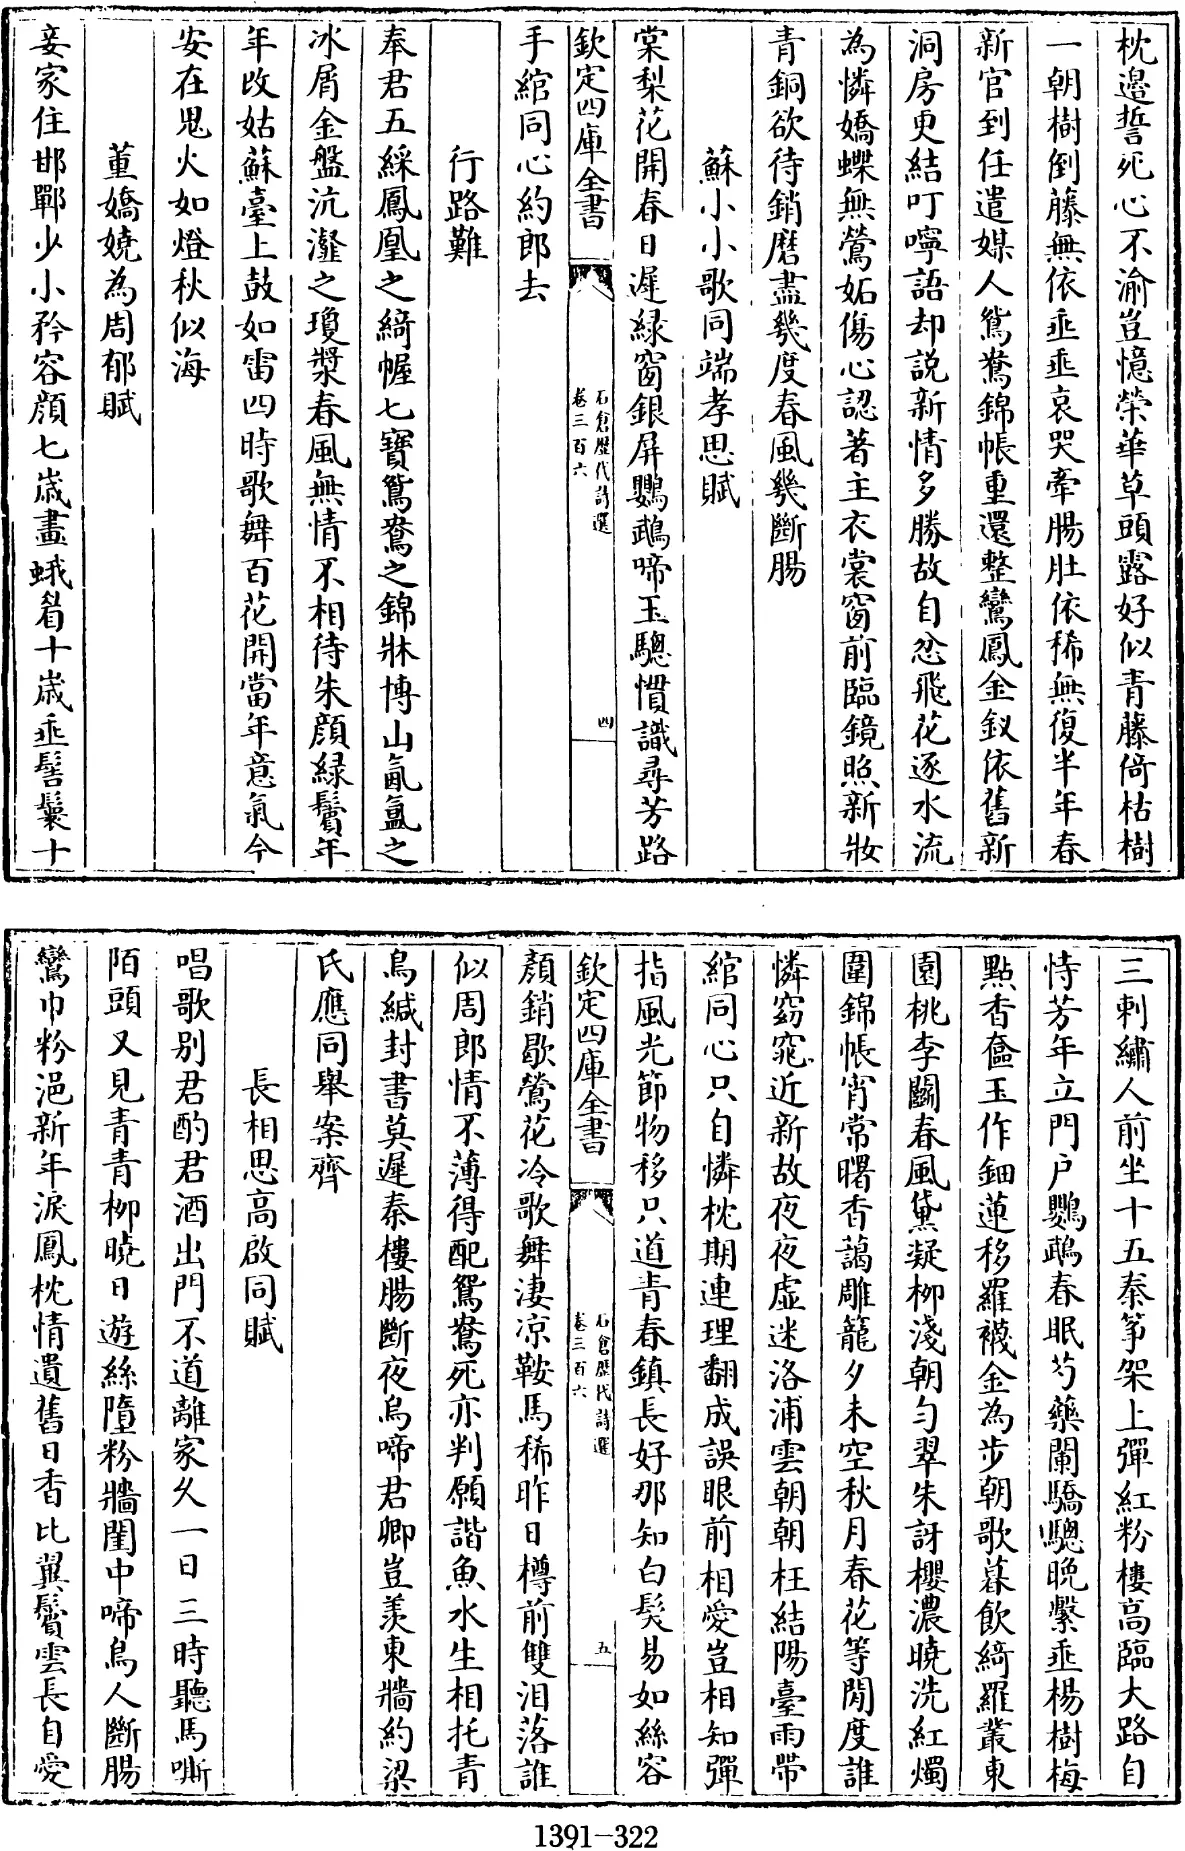 枕邊誓死心不渝豈憶榮華草頭露好似青藤倚枯樹
一朝樹倒藤無依垂垂哀哭牽腸肚依稀無復半年春
新官到任遣媒人鴛鴦錦帳重還整鸞鳳金釵依舊新
洞房更結叮嚀語却説新情多勝故自忿飛花逐水流
為憐嬌蝶無鶯妬傷心認著主衣裳窗前臨鏡照新妝
青銅欲待銷磨盡幾度春風幾斷腸
蘇小小歌同端孝思賦
棠梨花開春日遲緑窗銀屏鸚鵡啼玉驄慣識尋芳路
欽定四庫全書
石倉歷代詩選
卷三百六
四
手綰同心約郎去
行路難
奉君五綵鳳凰之綺幄七寶鴛鴦之錦牀博山氤氳之
冰屑金盤沆瀣之瓊漿春風無情不相待朱顔緑鬢年
年改姑蘇臺上鼓如雷四時歌舞百花開當年意氣今
安在鬼火如燈秋似海
董嬌嬈為周郁賦
妾家住邯鄲少小矜容顔七歳畫蛾眉十歳垂髻鬟十
三刺繡人前坐十五秦箏架上彈紅粉樓高臨大路自
恃芳年立門户鸚鵡春眠芍藥闌驕驄晩繫垂楊樹梅
點香奩玉作鈿蓮移羅襪金為步朝歌暮飲綺羅叢東
園桃李鬬春風黛凝柳淺朝勻翠朱訝櫻濃曉洗紅燭
圍錦帳宵常曙香藹雕籠夕未空秋月春花等閒度誰
憐窈窕近新故夜夜虚迷洛浦雲朝朝枉結陽臺雨帶
綰同心只自憐枕期連理翻成誤眼前相愛豈相知彈
指風光節物移只道青春鎮長好那知白髮易如絲容
欽定四庫全書
石倉歷代詩選
卷三百六
五
顔銷歇鶯花冷歌舞淒凉鞍馬稀昨日樽前雙泪落誰
似周郎情不薄得配鴛鴦死亦判願諧魚水生相托青
鳥緘封書莫遲秦樓腸斷夜烏啼君卿豈羨東牆約梁
氏應同舉案齊
長相思高啟同賦
唱歌别君酌君酒出門不道離家久一日三時聽馬嘶
陌頭又見青青柳曉日遊絲墮粉牆閨中啼鳥人斷腸
鸞巾粉浥新年淚鳳枕情遺舊日香比翼鬢雲長自愛
1391-322